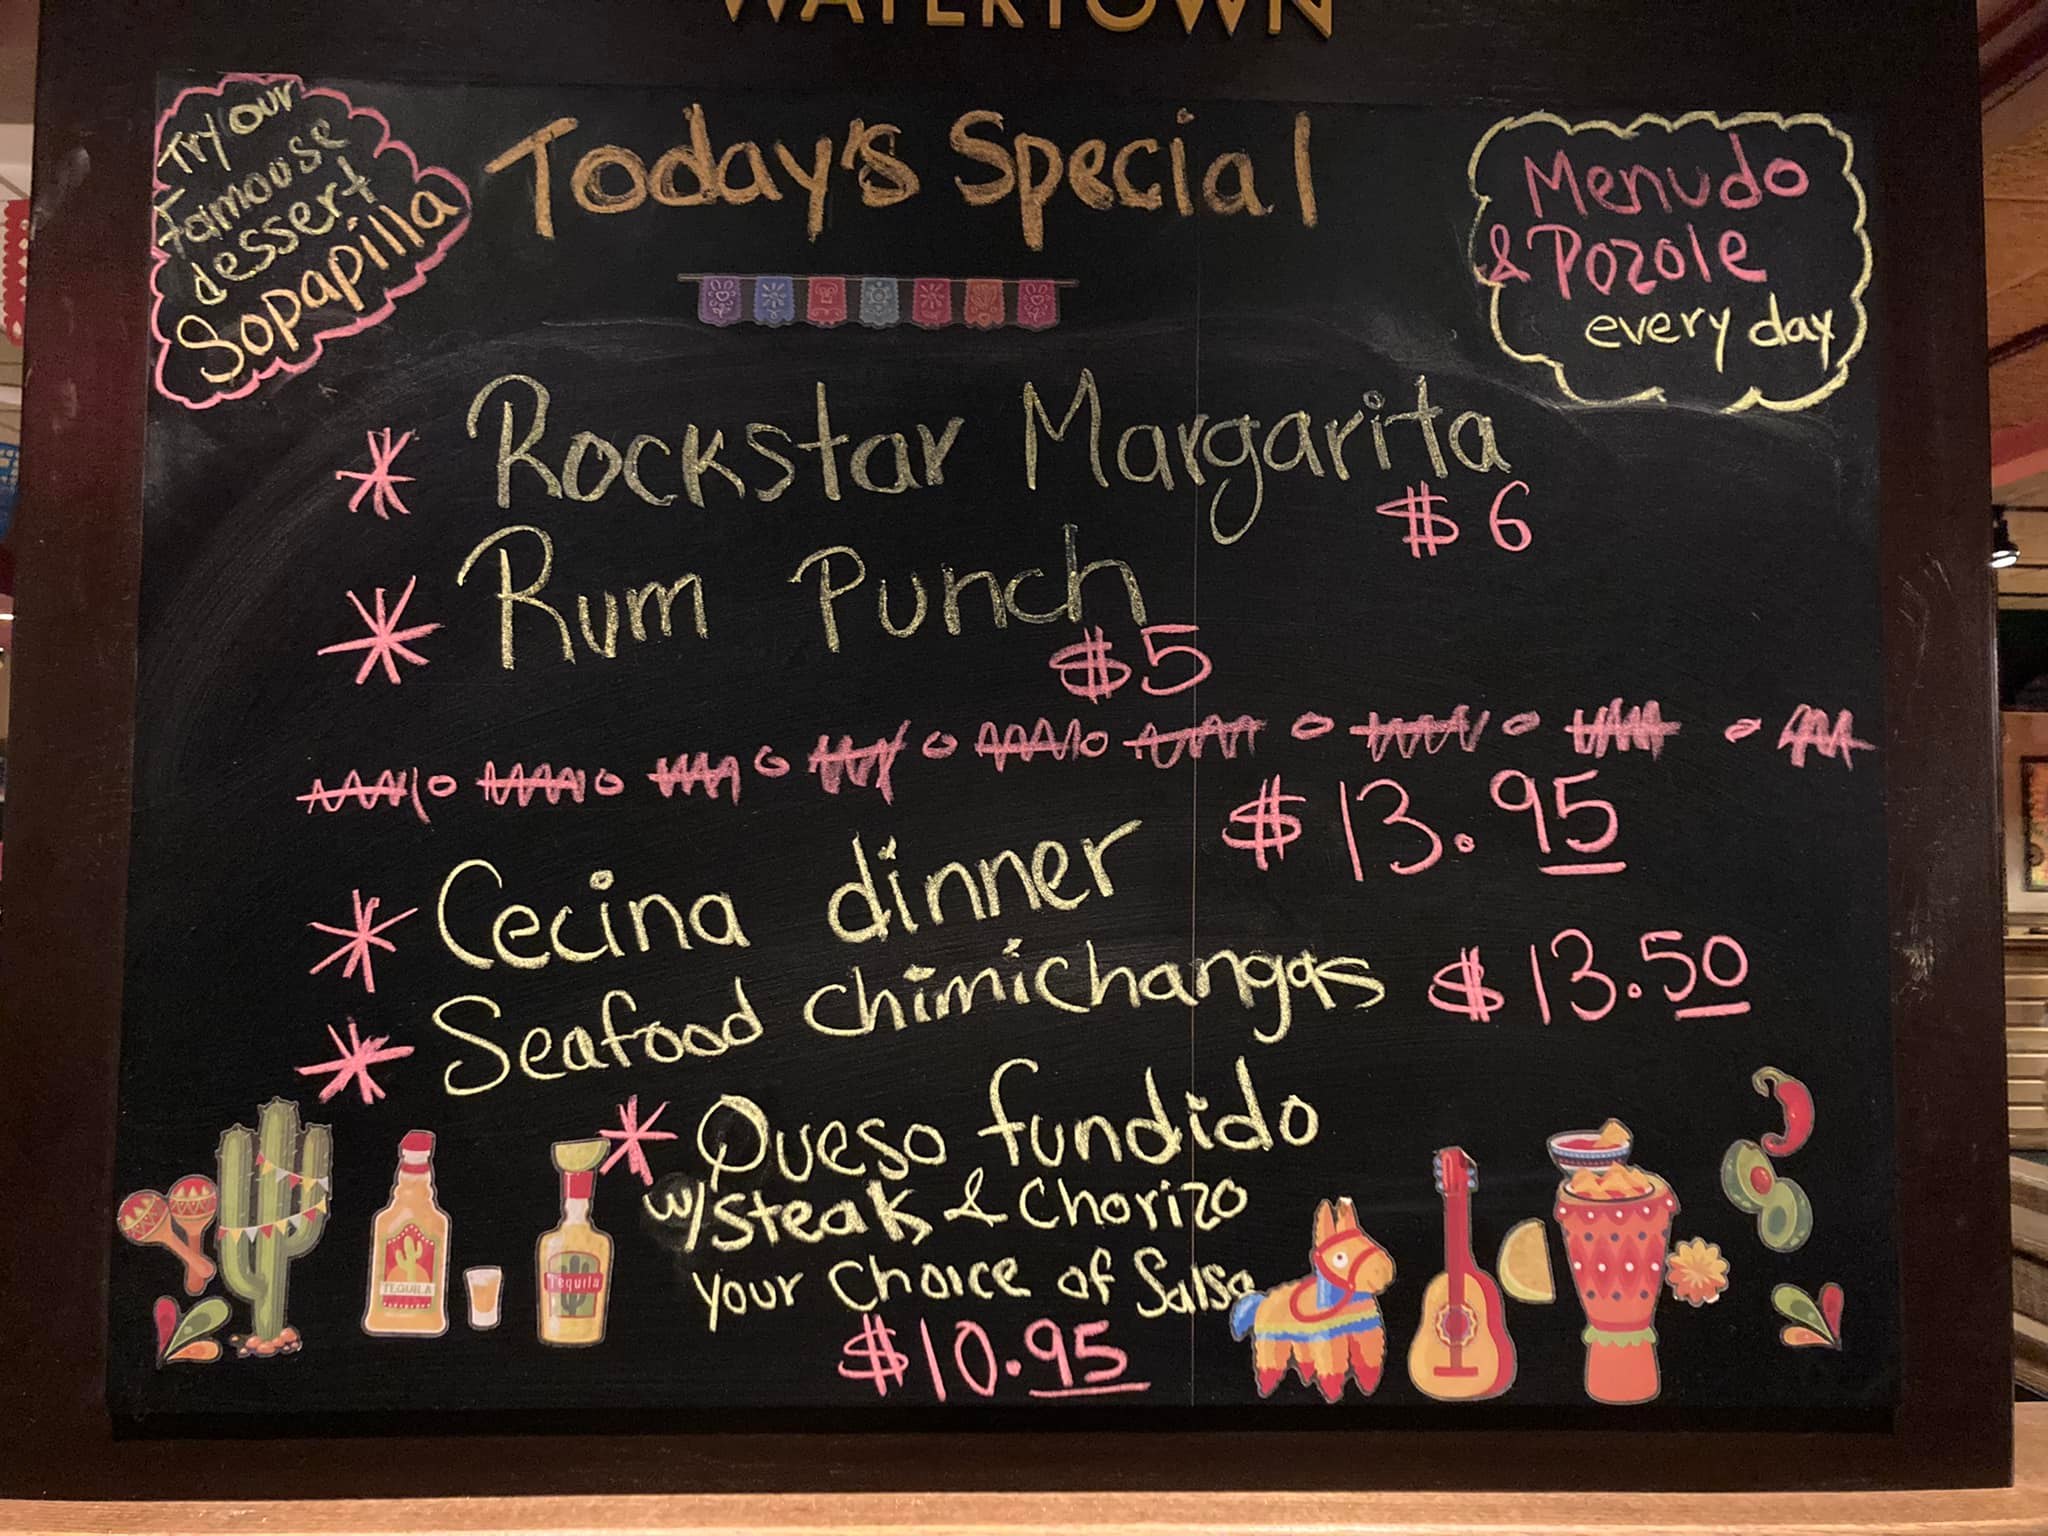 WATERTOWN
Try our
Famouse
dessert
Sopapilla
Today's Special
Menudo
& Pozole
every day
* Rockstar Margarita
$6
* Rum Punch
$5
* Cecina dinner $13.95
* Seafood chimichangas $13.50
* Queso fundido
w/steak & Chorizo
your choice of Salsa
$10.95
TEQUILA
Tequila